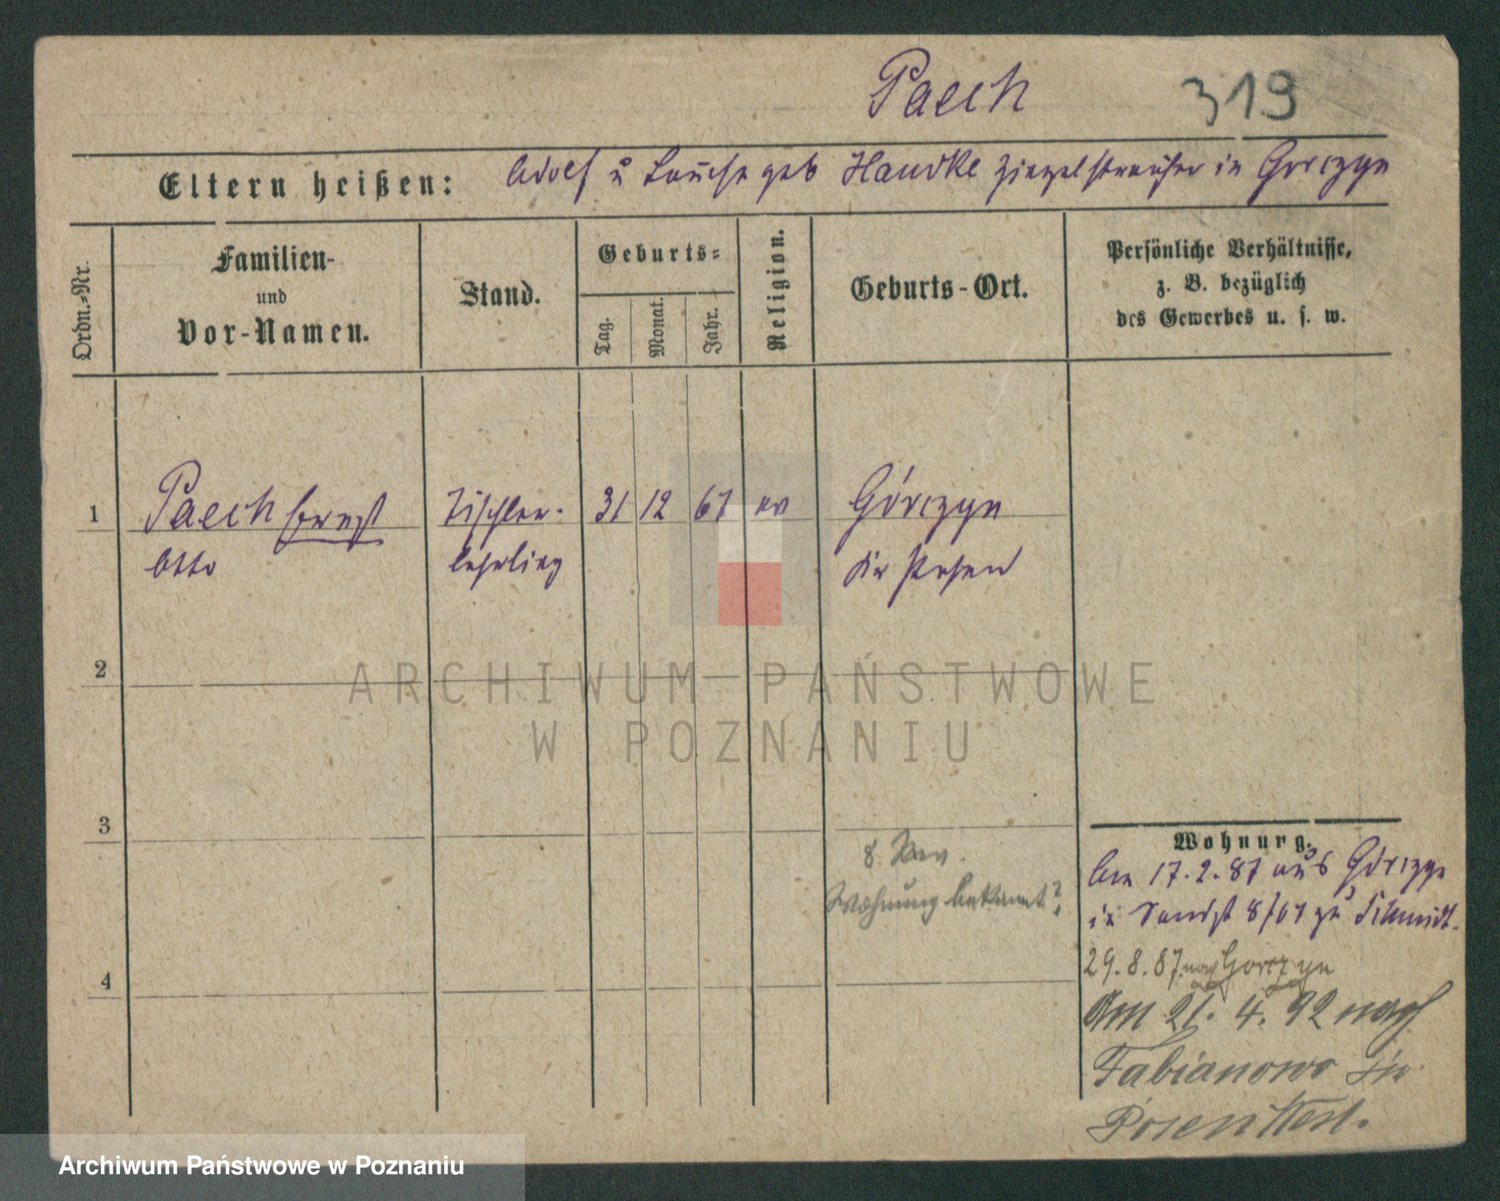 Paech 319
Eltern heißen: Adolf u Louise geb Handke Ziegelstreicher in Gorczyn
Ordn.-Nr.
Familien-
und
Vor-Namen.
Stand.
Geburts-
Tag.
Monat.
Jahr.
Religion.
Geburts-Ort.
Persönliche Verhältnisse,
z. B. bezüglich
des Gewerbes u. s. w.
1 Paech Ernst Tischler- 31 12 67 ev Górczyn
Otto lehrling Kr Posen
2
ARCHIWUM PAŃSTWOWE
W POZNANIU
3
Wohnung.
8.
Wohnung bekannt?
Am 17.2.87 aus Górczyn
in 8/67 zu Schmidt.
29.8.87. nach Gorczyn
4
Am 21. 4. 92 nach
Fabianowo Kr.
Posen West.
Archiwum Państwowe w Poznaniu